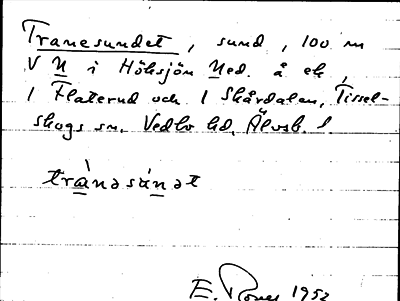 Tranesundet, sund, 100 m
V N i Höksjön Ned. å ek,
1 Flaterud och 1 Skårdalen, Tissel-
skogs sn, Vedbo hd, Älvsb. l.
trànəsúnət
E. 1952